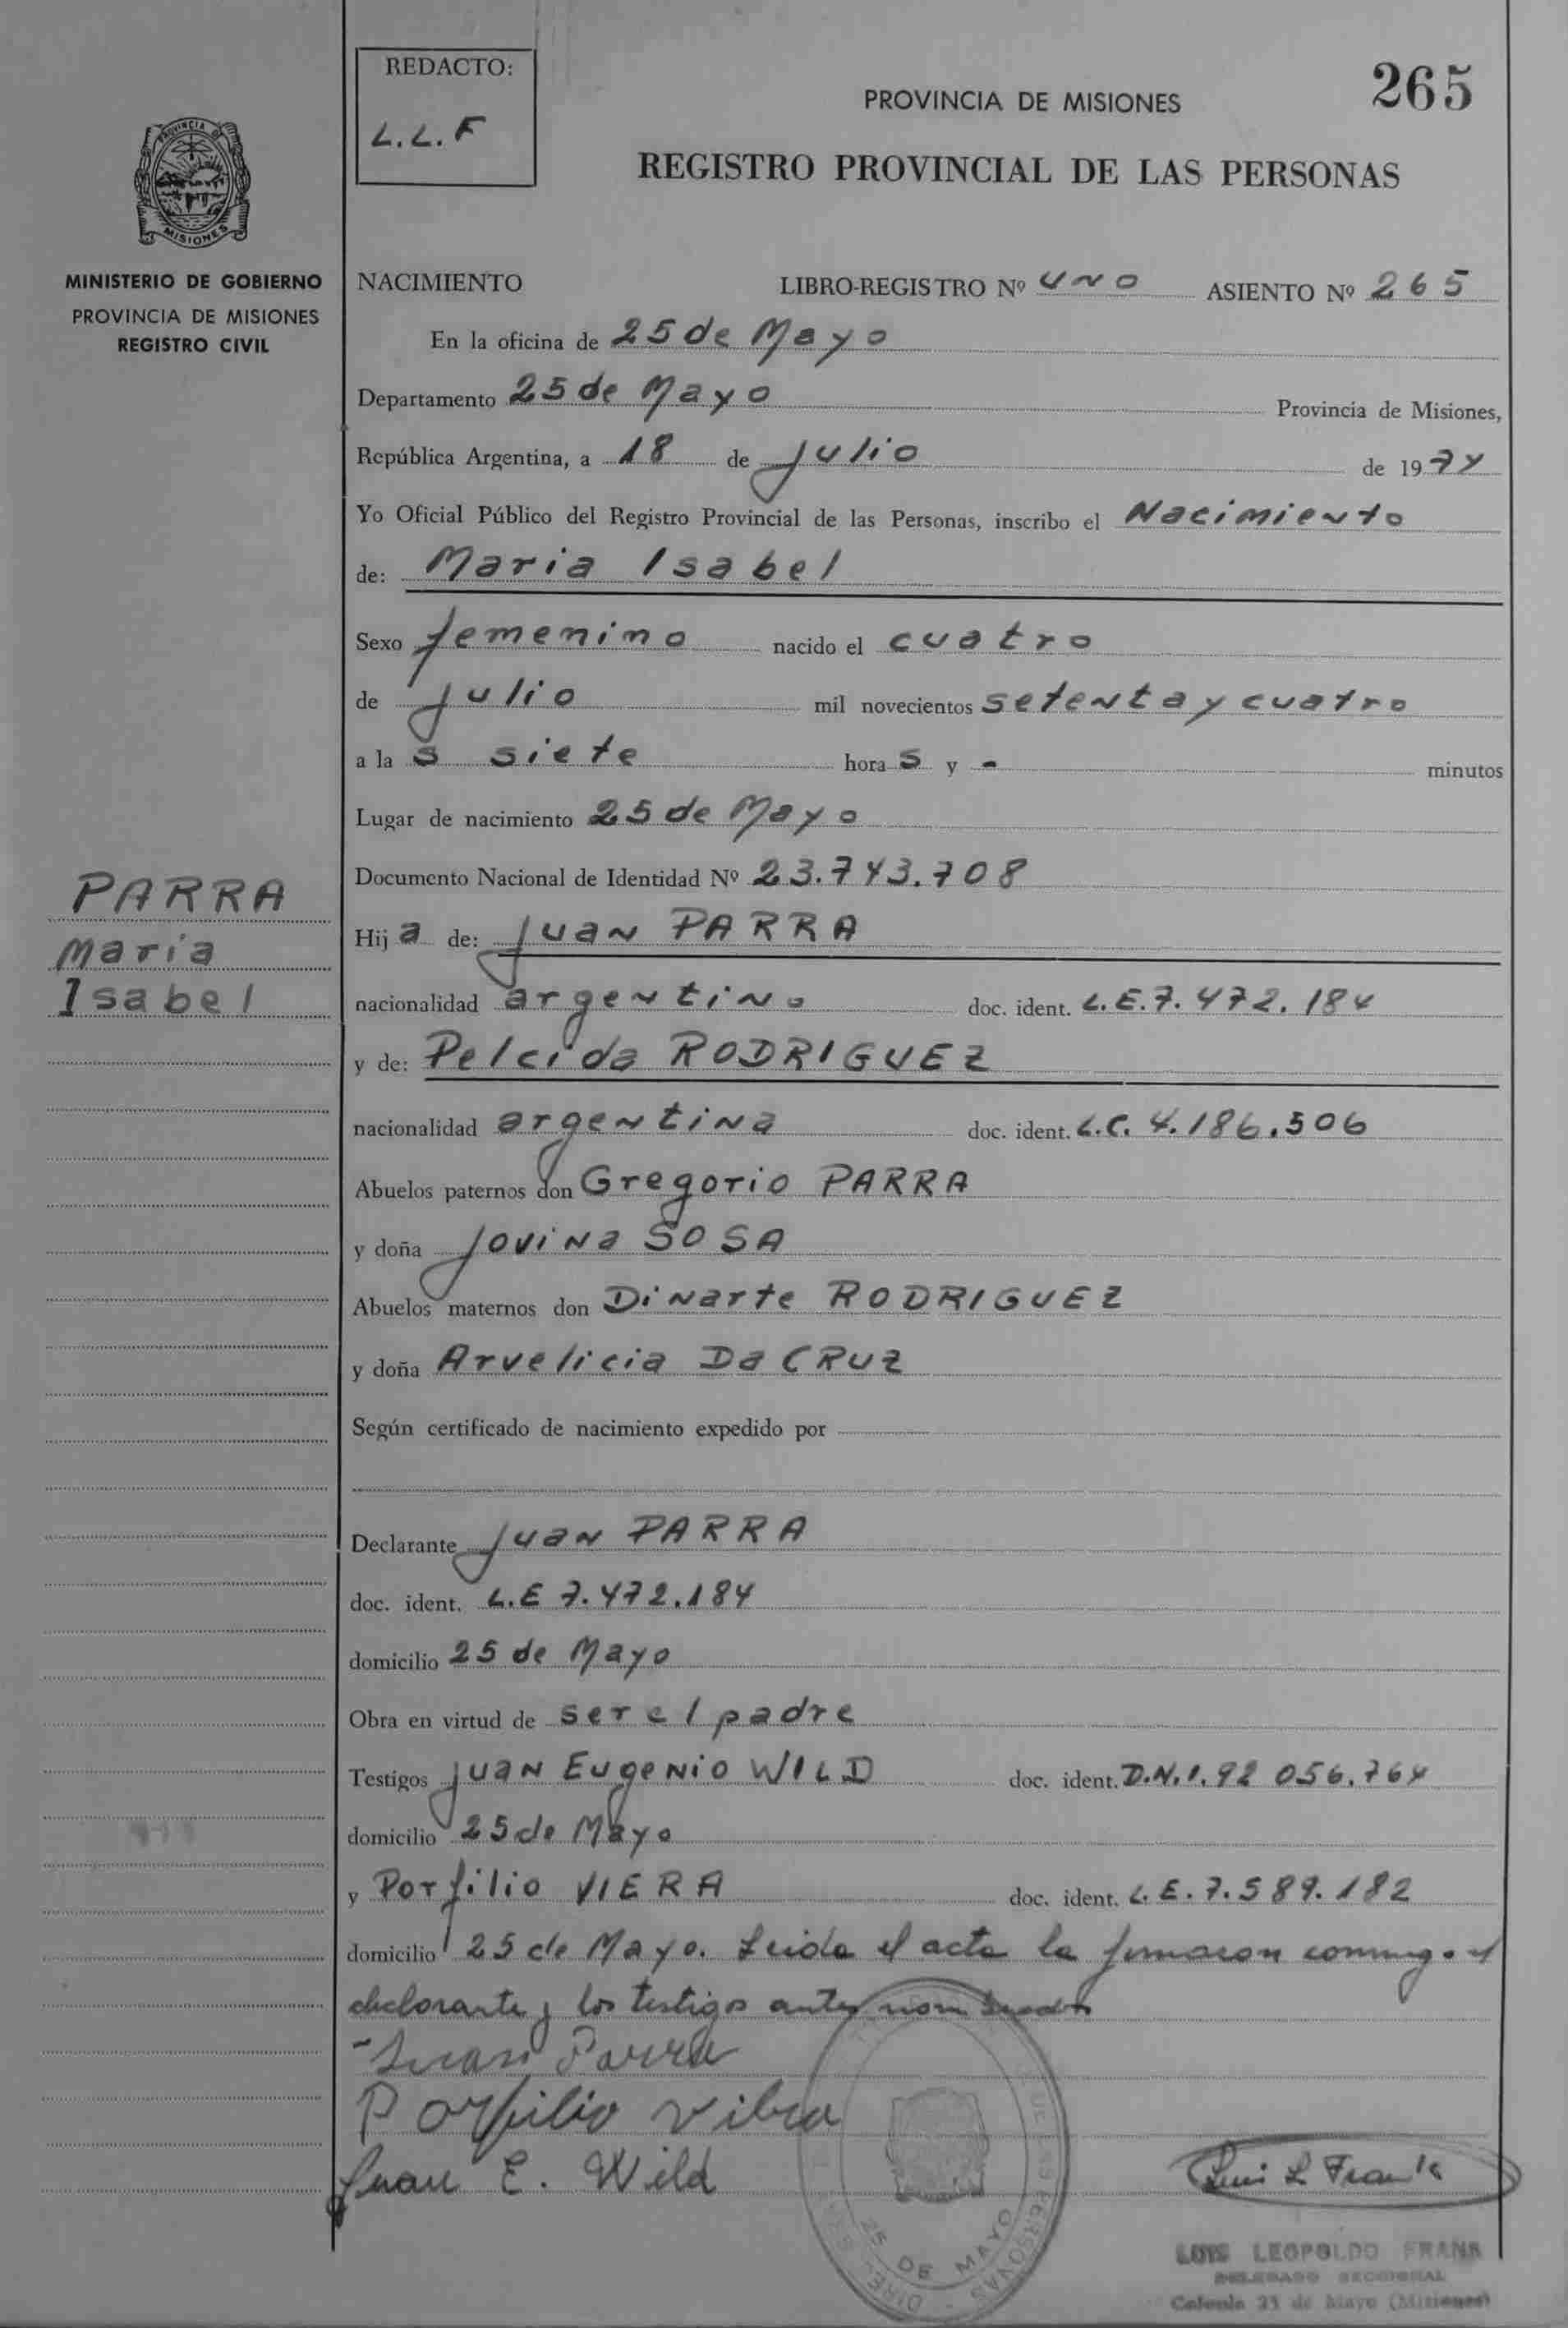 REDACTO:
L.L.F
PROVINCIA DE MISIONES
265
REGISTRO PROVINCIAL DE LAS PERSONAS
PROVINCIA DE
MISIONES
MINISTERIO DE GOBIERNO
PROVINCIA DE MISIONES
REGISTRO CIVIL
NACIMIENTO LIBRO-REGISTRO Nº UNO ASIENTO Nº 265
En la oficina de 25 de Mayo
Departamento 25 de Mayo Provincia de Misiones,
República Argentina, a 18 de Julio de 1974
Yo Oficial Público del Registro Provincial de las Personas, inscribo el Nacimiento
de: Maria Isabel
Sexo femenino nacido el cuatro
de Julio mil novecientos setenta y cuatro
a la s siete hora s y - minutos
Lugar de nacimiento 25 de Mayo
Documento Nacional de Identidad Nº 23.743.708
PARRA
Maria
Isabel
Hij a de: Juan PARRA
nacionalidad argentino doc. ident. L.E.7.472.184
y de: Pelcida RODRIGUEZ
nacionalidad argentina doc. ident. L.C. 4.186.506
Abuelos paternos don Gregorio PARRA
y doña Jovina SOSA
Abuelos maternos don Dinarte RODRIGUEZ
y doña Arvelicia Da CRUZ
Según certificado de nacimiento expedido por
Declarante Juan PARRA
doc. ident. L.E 7.472.184
domicilio 25 de Mayo
Obra en virtud de ser el padre
Testigos Juan Eugenio WILD doc. ident. D.N.I. 92 056.764
domicilio 25 de Mayo
y Porfilio VIERA doc. ident. L.E.7.589.182
domicilio 25 de Mayo. Leida el acta la firmaron conmigo el
declarante y los testigos antes nombrados
Juan Parra
Porfilio Vibra
Juan E. Wild
25 DE MAYO
Luis L Frank
LUIS LEOPOLDO FRANK
DELEGADO SECCIONAL
Colonia 25 de Mayo (Misiones)